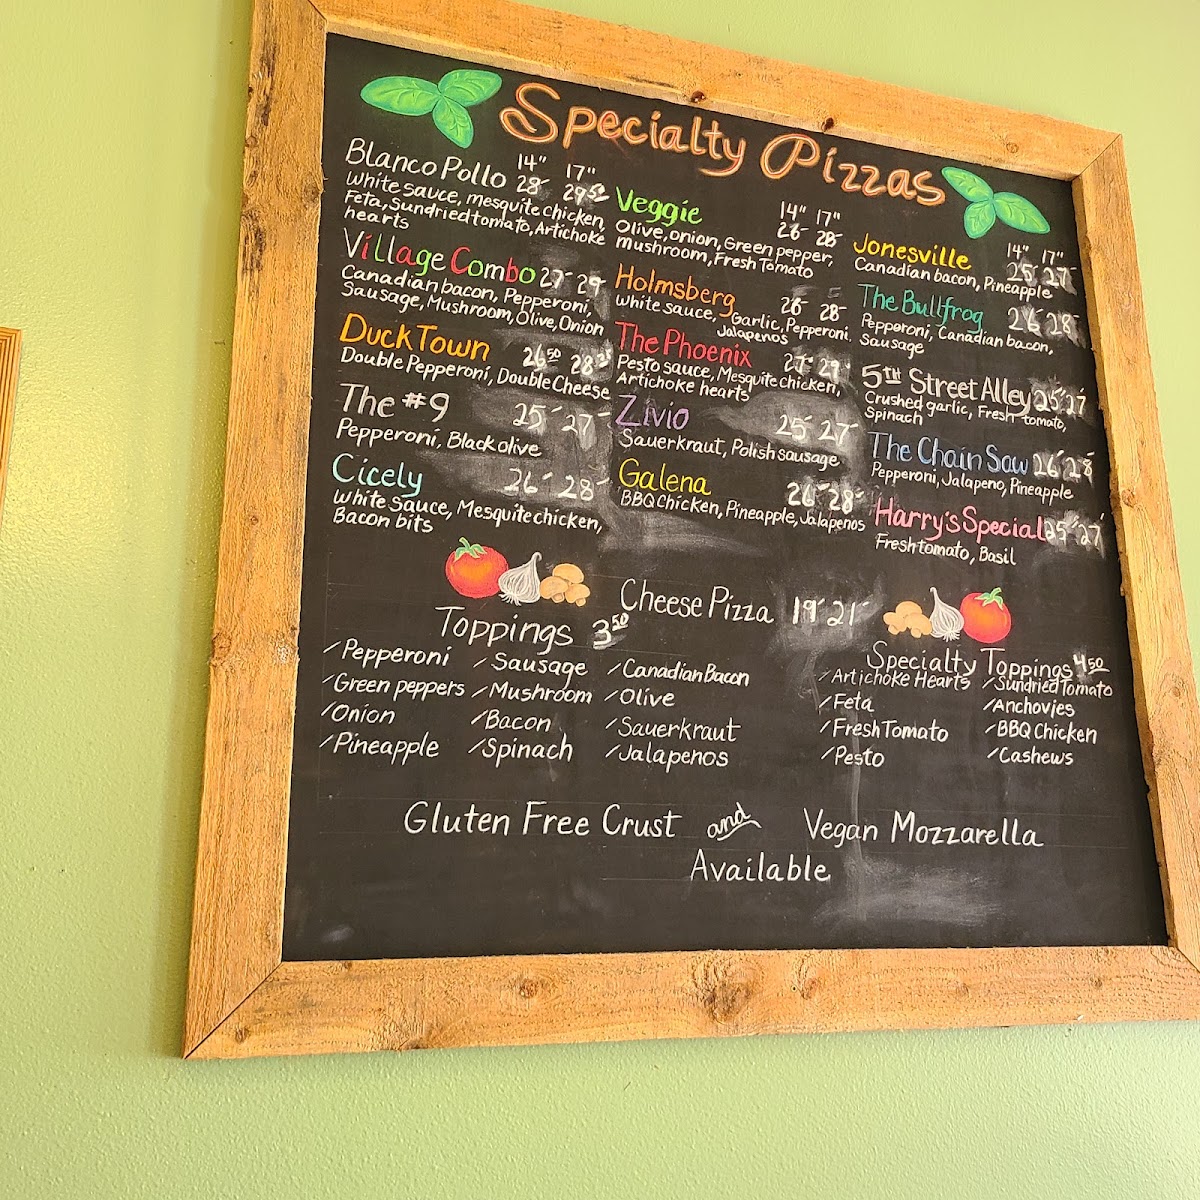 Specialty Pizzas
14" 17"
Blanco Pollo 28- 29⁵⁰
White sauce, mesquite chicken,
Feta, Sundried tomato, Artichoke
hearts
Village Combo 27- 29-
Canadian bacon, Pepperoni,
Sausage, Mushroom, Olive, Onion
Duck Town 26⁵⁰ 28
Double Pepperoni, Double Cheese
The #9 25- 27-
Pepperoni, Black olive
Cicely 26- 28-
White Sauce, Mesquite chicken,
Bacon bits
14" 17"
Veggie 26- 28-
Olive, onion, Green pepper,
mushroom, Fresh Tomato
Holmsberg 26- 28-
White sauce, Garlic, Pepperoni.
Jalapenos
The Phoenix 27- 29-
Pesto sauce, Mesquite chicken,
Artichoke hearts
Zivio 25- 27-
Sauerkraut, Polish sausage
Galena 26- 28-
BBQ Chicken, Pineapple, Jalapenos
14" 17"
Jonesville 25- 27-
Canadian bacon, Pineapple
The Bullfrog 26- 28-
Pepperoni, Canadian bacon,
Sausage
5TH Street Alley 25- 27-
Crushed garlic, Fresh tomato,
Spinach
The Chain Saw 26- 28
Pepperoni, Jalapeno, Pineapple
Harry's Special 25- 27-
Fresh tomato, Basil
Cheese Pizza 19- 21-
Toppings 3⁵⁰
Pepperoni Sausage Canadian Bacon
Green peppers Mushroom Olive
Onion Bacon Sauerkraut
Pineapple Spinach Jalapenos
Specialty Toppings 4⁵⁰
Artichoke Hearts Sundried Tomato
Feta Anchovies
Fresh Tomato BBQ Chicken
Pesto Cashews
Gluten Free Crust and Vegan Mozzarella
Available